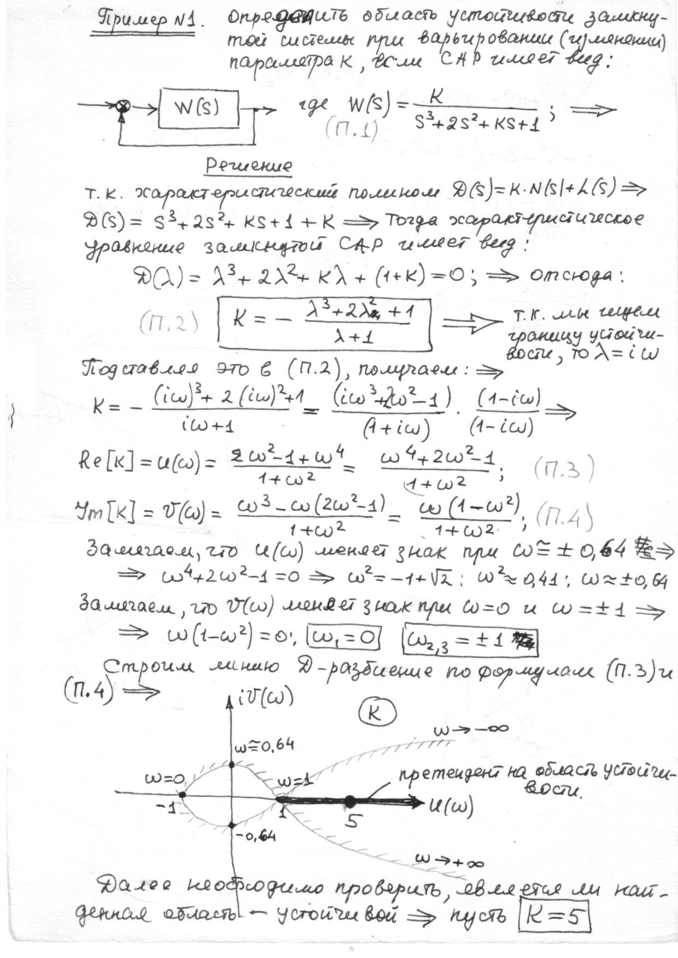 Пример №1. Определить область устойчивости замкну-
той системы при варьировании (изменении)
параметра K, если САР имеет вид:
W(S) где W(S) = K / (S³+2S²+KS+1) ; ⟹
(П.1)
Решение
Т.к. характеристический полином D(S)=K·N(S)+L(S) ⟹
D(S) = S³+2S²+KS+1+K ⟹ Тогда характеристическое
уравнение замкнутой САР имеет вид:
D(λ) = λ³+2λ²+Kλ+(1+K)=0; ⟹ отсюда:
(П.2) K = − (λ³+2λ²+1) / (λ+1) ⟹ т.к. мы ищем
границу устойчи-
вости, то λ=iω
Подставляя это в (П.2), получаем: ⟹
K = − ((iω)³+2(iω)²+1) / (iω+1) = (iω³+2ω²−1) / (1+iω) · (1−iω) / (1−iω) ⟹
Re[K]=u(ω)= (2ω²−1+ω⁴) / (1+ω²) = (ω⁴+2ω²−1) / (1+ω²); (П.3)
Im[K]=v(ω)= (ω³−ω(2ω²−1)) / (1+ω²) = ω(1−ω²) / (1+ω²); (П.4)
Замечаем, что u(ω) меняет знак при ω≅±0,64 ⟹
⟹ ω⁴+2ω²−1=0 ⟹ ω²=−1+√2; ω²≈0,41; ω≈±0,64
Замечаем, что v(ω) меняет знак при ω=0 и ω=±1 ⟹
⟹ ω(1−ω²)=0; ω₁=0 ω₂,₃=±1
Строим линию D-разбиение по формулам (П.3) и
(П.4) ⟹ iv(ω) K
ω→−∞
ω≅0,64
ω=0 ω=1 претендент на область устойчи-
вости.
−1 1 5 u(ω)
−0,64
ω→+∞
Далее необходимо проверить, является ли най-
денная область − устойчивой ⟹ пусть K=5